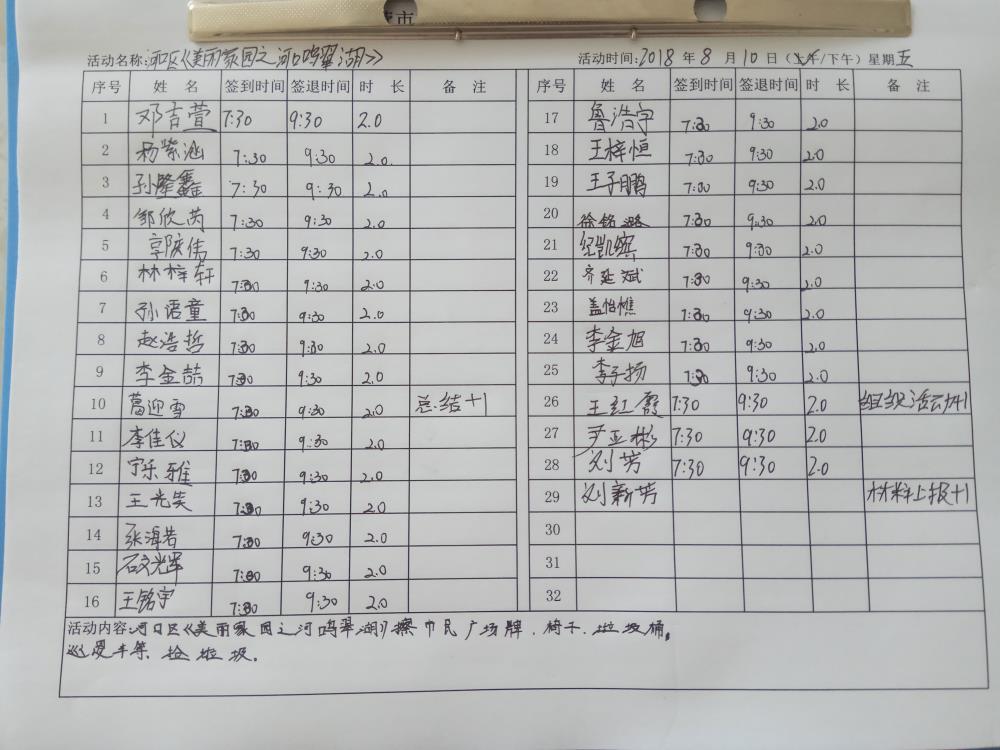 活动名称:河口区《美丽家园之河口鸣翠湖》 活动时间:2018 年 8 月 10 日（上午/下午）星期五
序号 姓名 签到时间 签退时间 时长 备注 序号 姓名 签到时间 签退时间 时长 备注
1 邓吉萱 7:30 9:30 2.0 17 鲁浩宇 7:30 9:30 2.0
2 杨紫涵 7:30 9:30 2.0 18 王梓恒 7:30 9:30 2.0
3 孙隆鑫 7:30 9:30 2.0 19 王子鹏 7:30 9:30 2.0
4 邹欣芮 7:30 9:30 2.0 20 徐铭潞 7:30 9:30 2.0
5 伟 7:30 9:30 2.0 21 纪凯缤 7:30 9:30 2.0
6 林梓轩 7:30 9:30 2.0 22 齐延斌 7:30 9:30 2.0
7 孙语童 7:30 9:30 2.0 23 盖怡樵 7:30 9:30 2.0
8 赵浩哲 7:30 9:30 2.0 24 李金旭 7:30 9:30 2.0
9 李金喆 7:30 9:30 2.0 25 李子扬 7:30 9:30 2.0
10 葛迎雪 7:30 9:30 2.0 总结+1 26 王红霞 7:30 9:30 2.0 组织活动+1
11 李佳仪 7:30 9:30 2.0 27 尹亚彬 7:30 9:30 2.0
12 宁乐雅 7:30 9:30 2.0 28 刘芳 7:30 9:30 2.0
13 王光笑 7:30 9:30 2.0 29 刘新芳 材料上报+1
14 张海若 7:30 9:30 2.0 30
15 石文光军 7:30 9:30 2.0 31
16 王铭宇 7:30 9:30 2.0 32
活动内容:河口区《美丽家园之河鸣翠湖》擦市民广场牌、椅子、垃圾桶。
巡逻车等、捡垃圾。